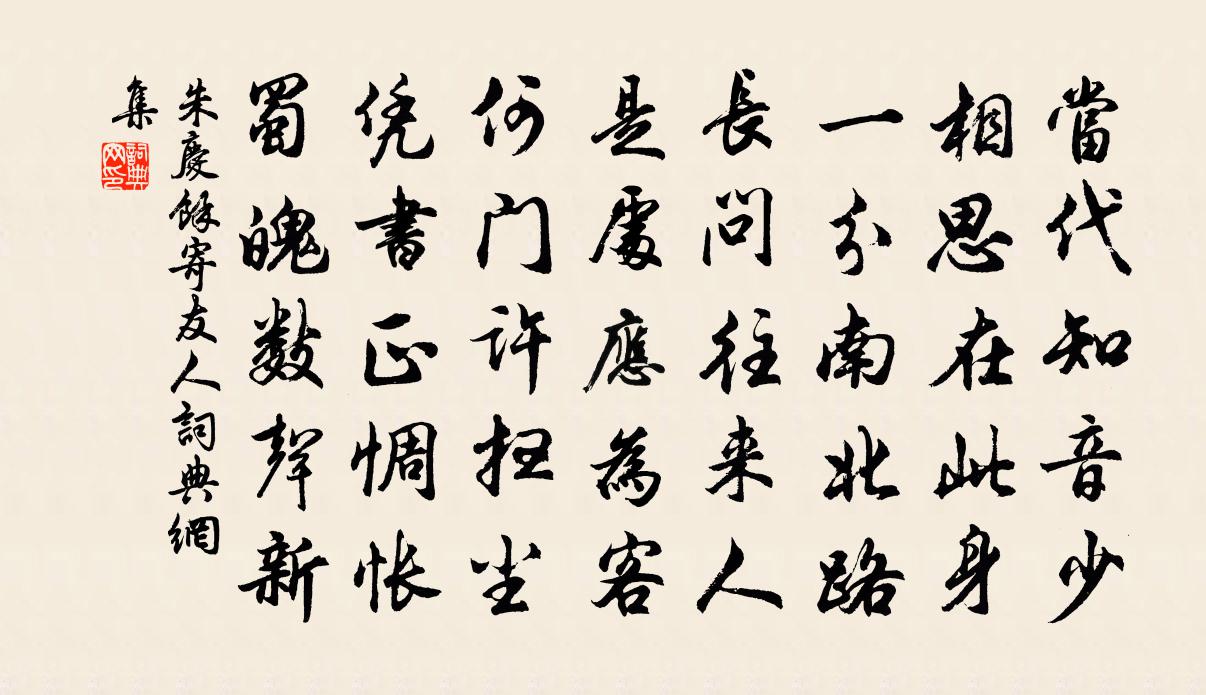 當代知音少
相思在此身
一分南北路
長問往来人
是處應為客
何門許扫尘
凭書正惆怅
蜀魄数聲新
朱慶餘寄友人詞典網
集
詞典
网印